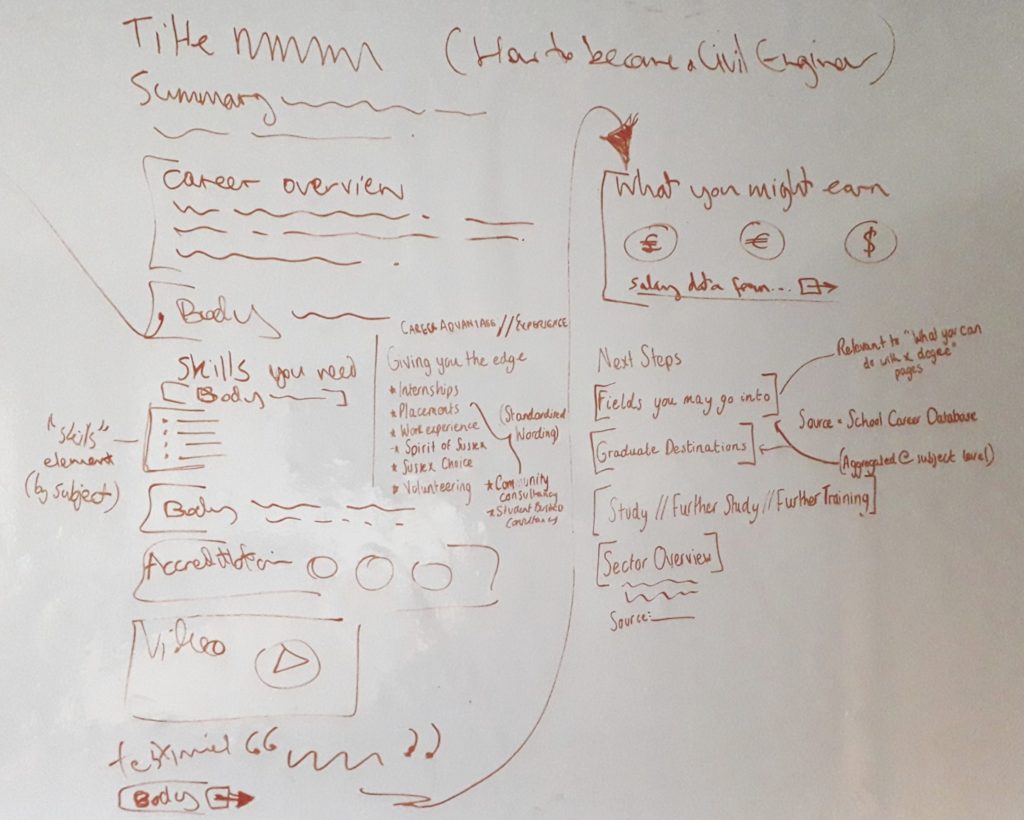 Title
(How to become a Civil Engineer)
Summary
Career overview
Body
Skills you need
Body
"Skills"
element
(by subject)
Body
Accreditation
Video
“ ”
Body
CAREER ADVANTAGE // EXPERIENCE
Giving you the edge
* Internships
* Placements
* Work experience
* Spirit of Sussex
* Sussex Choice
* Volunteering
(Standardised
Wording)
* Community
consultancy
* Student Business
Consultancy
What you might earn
£ € $
Salary data from...
Next Steps
Fields you may go into
Graduate Destinations
Study // Further Study // Further Training
Sector Overview
Source:
Relevant to "What you can
do with x degree"
pages
Source = School Career Database
(Aggregated @ subject level)